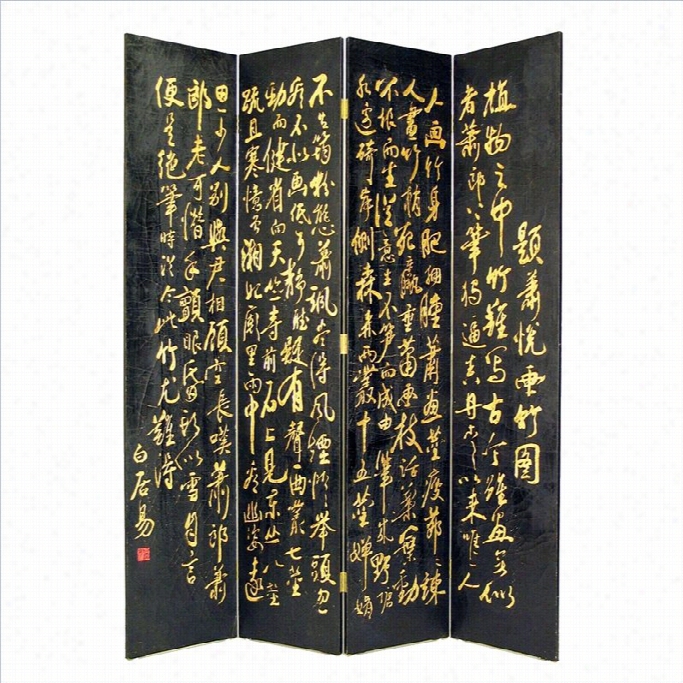 題蕭悅画竹图
植物之中竹難写古今雖畫無似
者蕭郎下筆獨逼真丹青以来唯一人
人画竹身肥拥腫蕭畫莖瘦節々竦
人畫竹梢死羸垂蕭画枝活葉葉動
不根而生從意生不笋而成由筆成野塘
水邊碕岸侧森森两叢十五莖嬋娟
不失筠粉態蕭飒尽得风煙情举頭忽
看不似画低耳静聽疑有聲西叢七莖
劲而健省向天竺寺前石上見东丛八莖
疏且寒憶曾湘妃阁里雨中看幽姿遠
思少人别與君相顧空長嘆蕭郎蕭
郎老可惜手顫眼昏頭似雪自言
便是绝筆時從今此竹尤難得
白居易